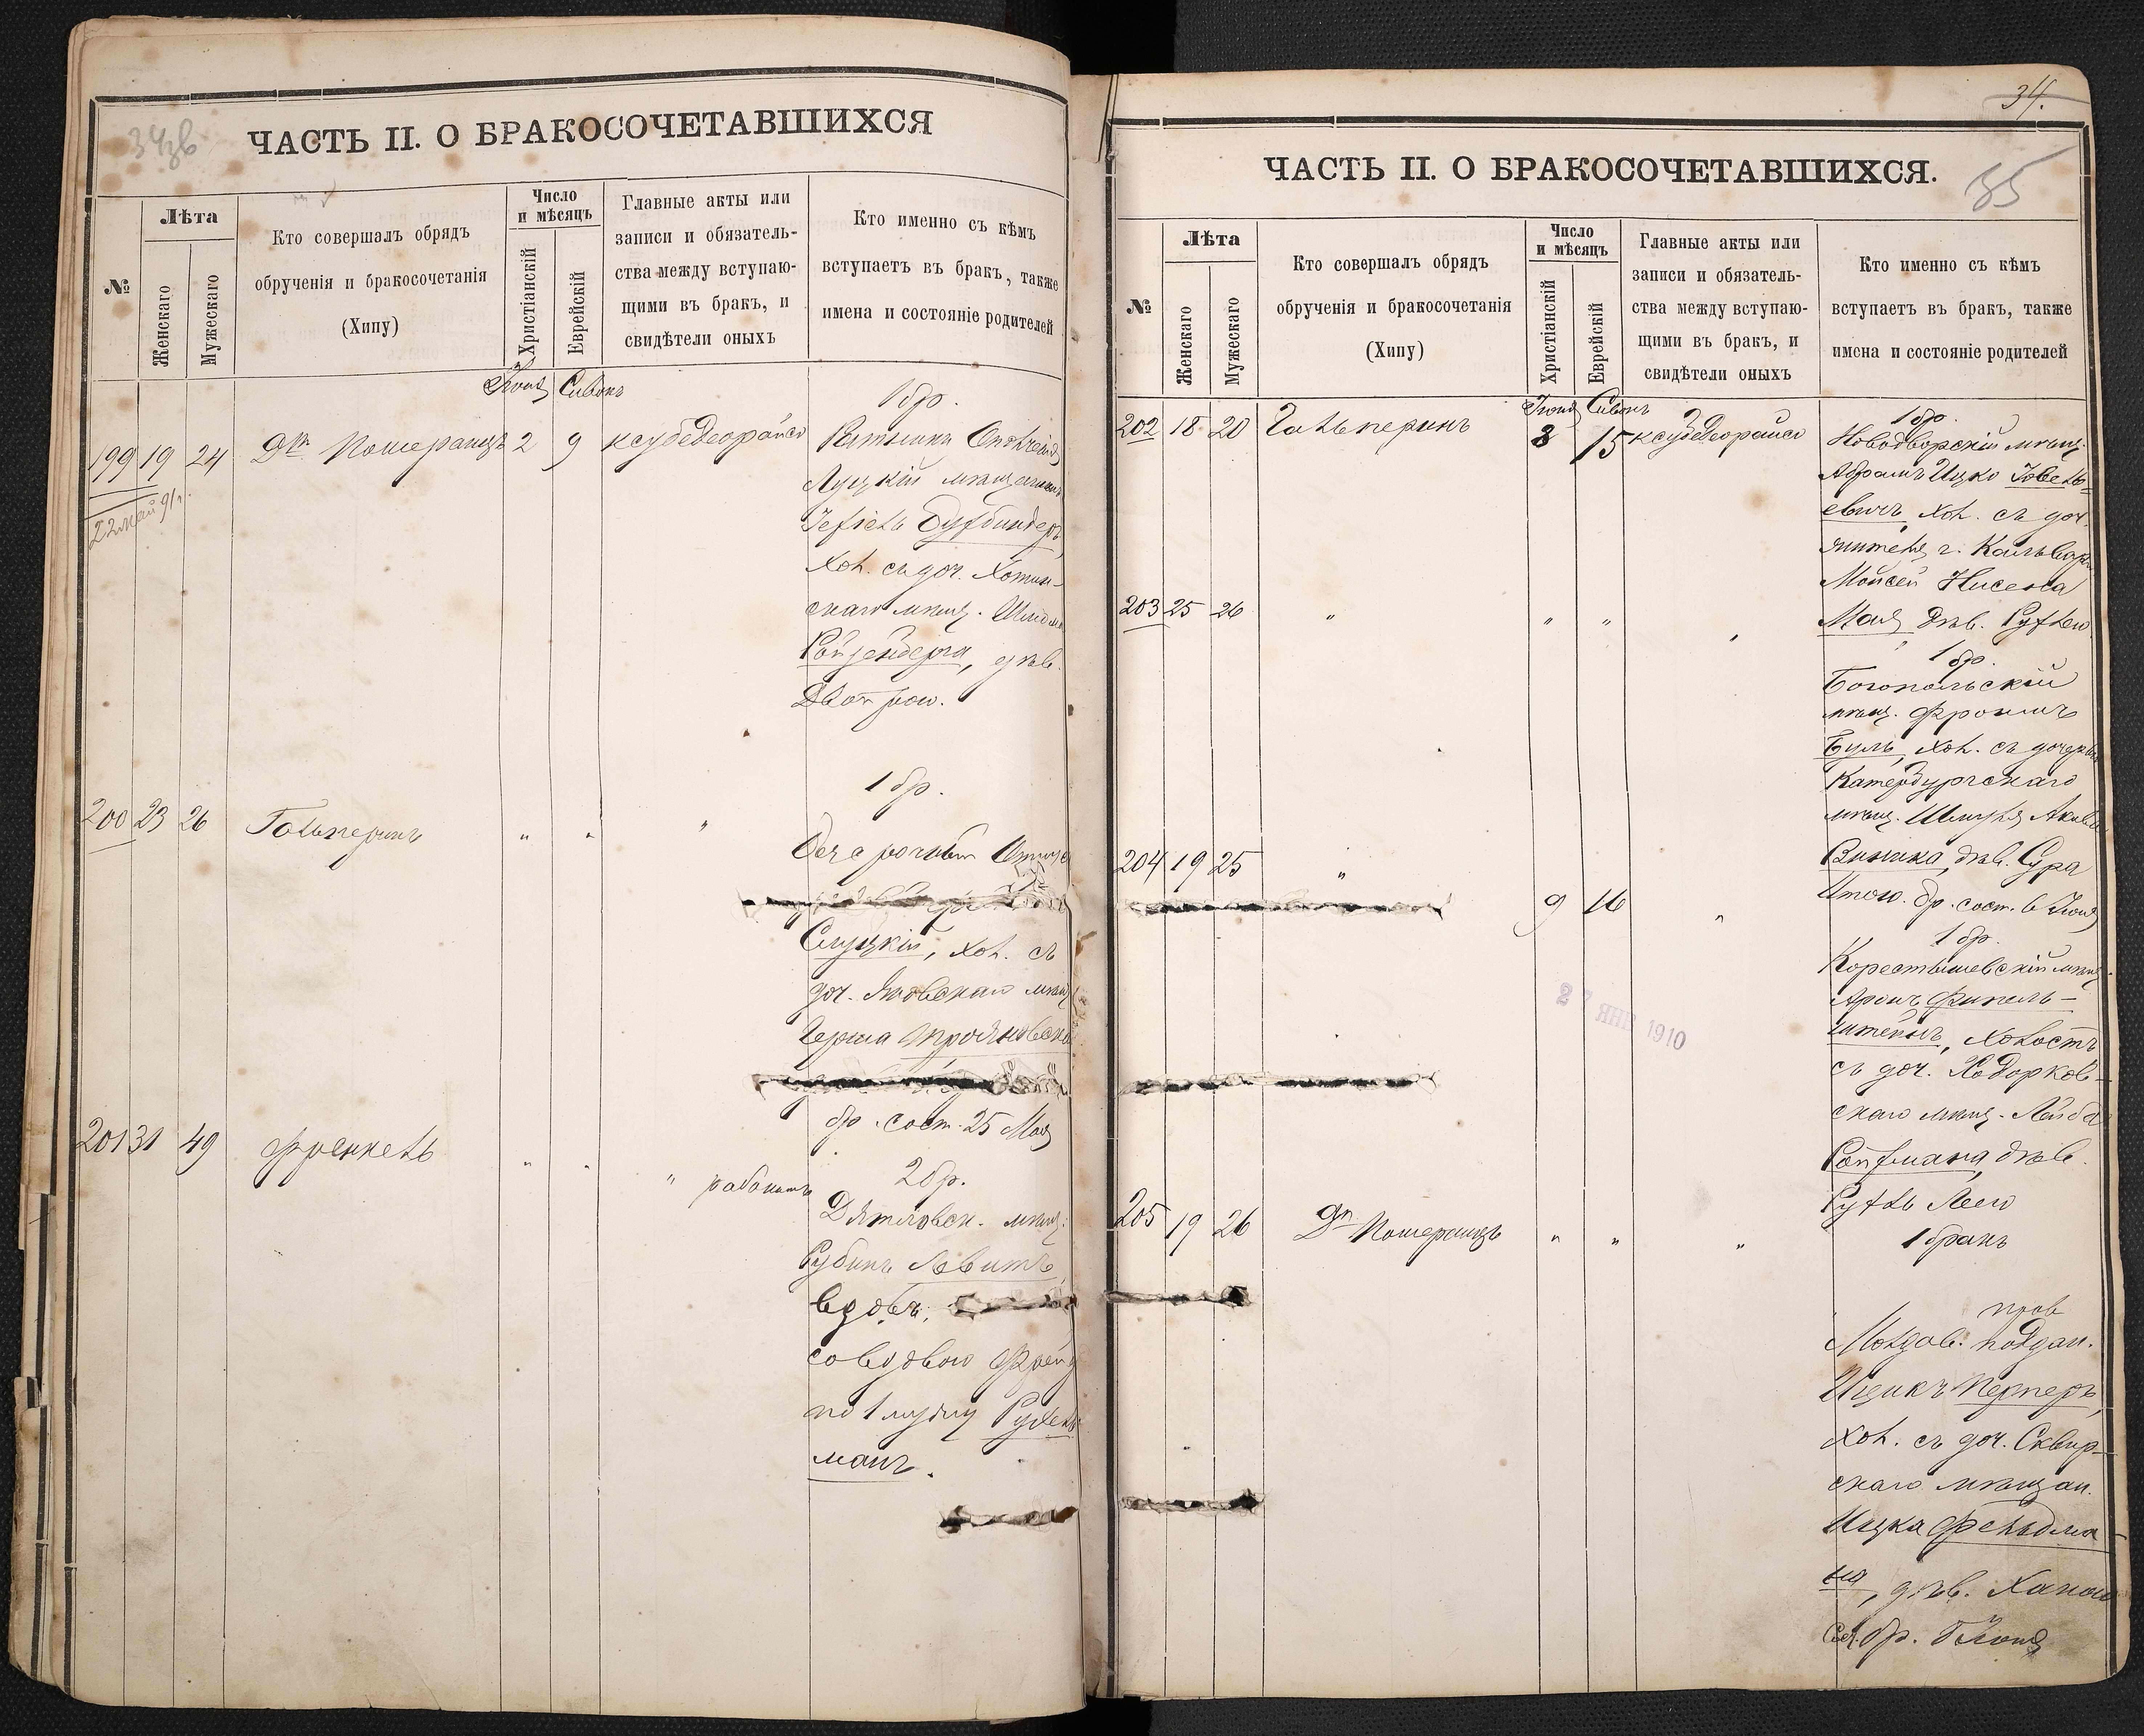 34зв
ЧАСТЬ II. О БРАКОСОЧЕТАВШИХСЯ
№
Лѣта
Женскаго
Мужескаго
Кто совершалъ обрядъ
обрученія и бракосочетанія
(Хипу)
Число
и мѣсяцъ
Христіанскій
Еврейскій
Главные акты или
записи и обязатель-
ства между вступаю-
щими въ бракъ, и
свидѣтели оныхъ
Кто именно съ кѣмъ
вступаетъ въ бракъ, также
имена и состояніе родителей
Іюня Сивонъ
1 бр.
199 19 24 Дръ Померанцъ 2 9 ксубедеорайсо
22 май 91 г.
Луцкій мѣщанинъ
Іехіель Бухбиндеръ,
Хол. съ доч. Хотин-
скаго мѣщ. Шлйома
Ройзенберга, дѣв.
Двойрою.
1 бр.
200 23 26 Гальперинъ " " "
Слуцкій, хол. съ
доч. мѣщ.
Герша Трояновскаго
бр. сост. 25 Мая
201 31 49 Френкель " " " рабонимъ
2 бр.
Дятловск. мѣщ.
Рубинъ Левитъ,
вдовъ,
со вдовою Фрейда
по 1 мужу Рухель
манъ.
34.
35
ЧАСТЬ II. О БРАКОСОЧЕТАВШИХСЯ.
№
Лѣта
Женскаго
Мужескаго
Кто совершалъ обрядъ
обрученія и бракосочетанія
(Хипу)
Число
и мѣсяцъ
Христіанскій
Еврейскій
Главные акты или
записи и обязатель-
ства между вступаю-
щими въ бракъ, и
свидѣтели оныхъ
Кто именно съ кѣмъ
вступаетъ въ бракъ, также
имена и состояніе родителей
Іюня Сивонъ
1 бр.
202 18 20 Гальперинъ 8 15 ксубедеорайсо
Новодворскій мѣщ.
Абрамъ Ицко Іовель-
евичъ, хол. съ доч.
жителя г. Кальвар
Мойсей Нисена
Мая дѣв. Рухлею
203 25 26 " " " "
1 бр.
Богопольскій
мѣщ. Фроимъ
Буль, хол. съ дочерью
Катербургскаго
мѣщ. Шмуля Акива
Винника, дѣв. Сура
Итою. бр. сост. в Іюня
204 19 25 " 9 16 "
1 бр.
Коростышевскій мѣщ.
Аронъ Финкель-
штейнъ, Холостъ
съ доч. Ходорков-
скаго мѣщ. Лейба
Ройтмана, дѣв.
Рухль Леею
27 ЯНВ 1910
205 19 26 Дръ Померанцъ " " "
1 бракъ
Молдав. поддан.
Ицикъ Перперъ,
Хол. съ доч. Сквир-
скаго мѣщан.
Ицка Фельдма-
на, дѣв. Ханою
бр. Іюня